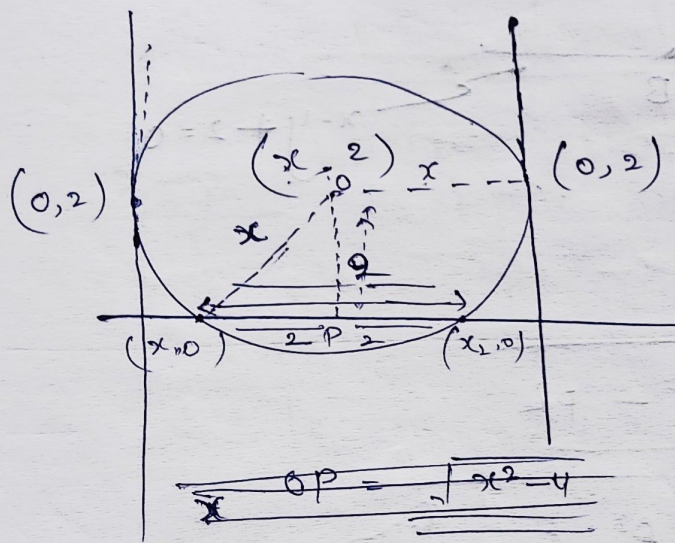 (x, 2)
(0, 2)
O
x
(0, 2)
x
2
(x1, 0)
2 P 2
(x2, 0)
OP = √x²-4
x